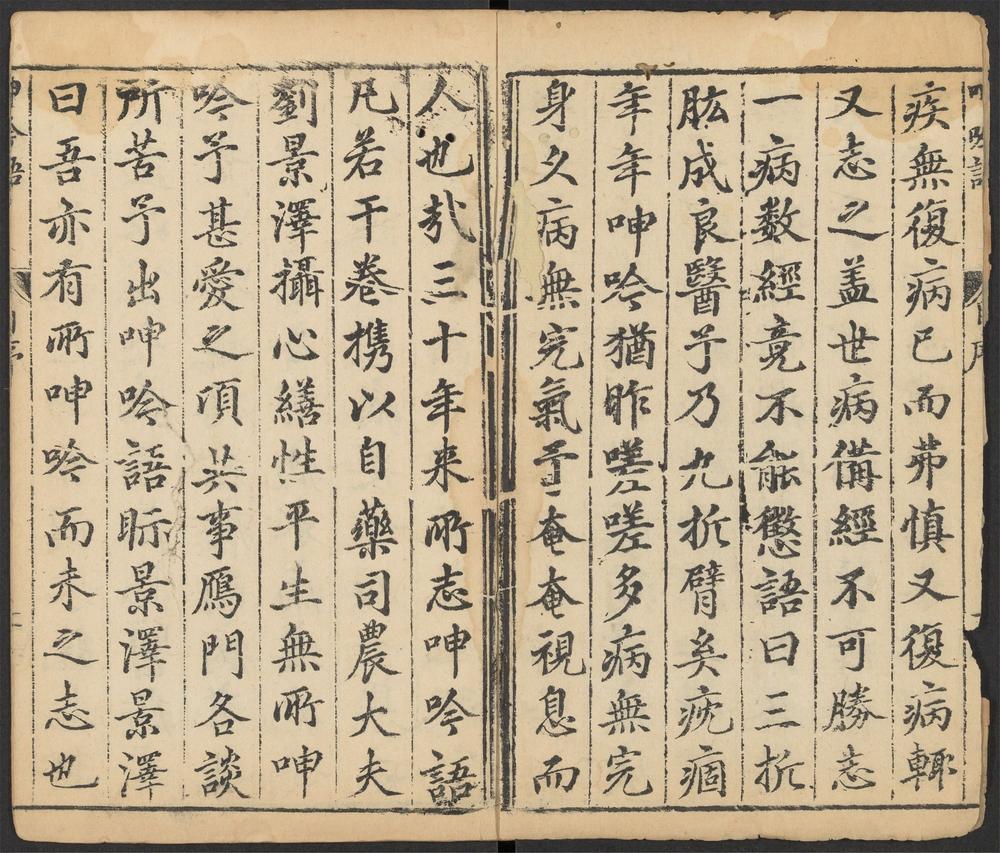 疾無復病已而弗慎又復病輙
又志之盖世病備經不可勝志
一病数經竟不能懲語曰三折
肱成良醫予乃九折臂矣疣痼
年年呻吟猶昨嗟嗟多病無完
身久病無完氣予奄奄視息而
人也㢤三十年来所志呻吟語
凡若干卷携以自藥司農大夫
劉景澤攝心繕性平生無所呻
吟予甚愛之頃共事鴈門各談
所苦予出呻吟語眎景澤景澤
曰吾亦有所呻吟而未之志也